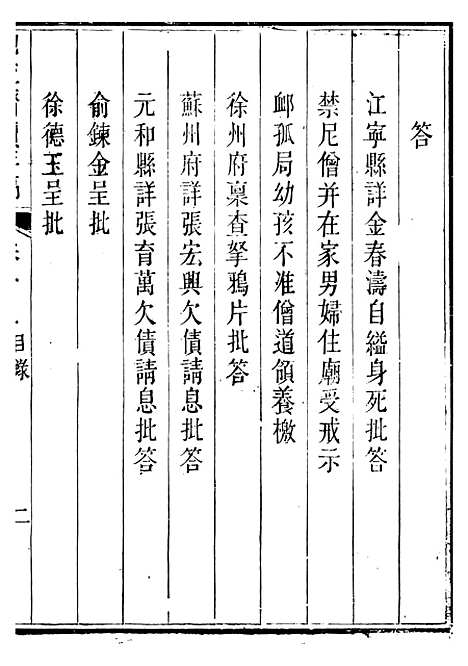 答
江寧縣詳金春濤自縊身死批答
禁尼僧并在家男婦住廟受戒示
卹孤局幼孩不准僧道領養檄
徐州府稟查拏鴉片批答
蘇州府詳張宏興欠債請息批答
元和縣詳張育萬欠債請息批答
俞鍊金呈批
徐德玉呈批
目錄
二